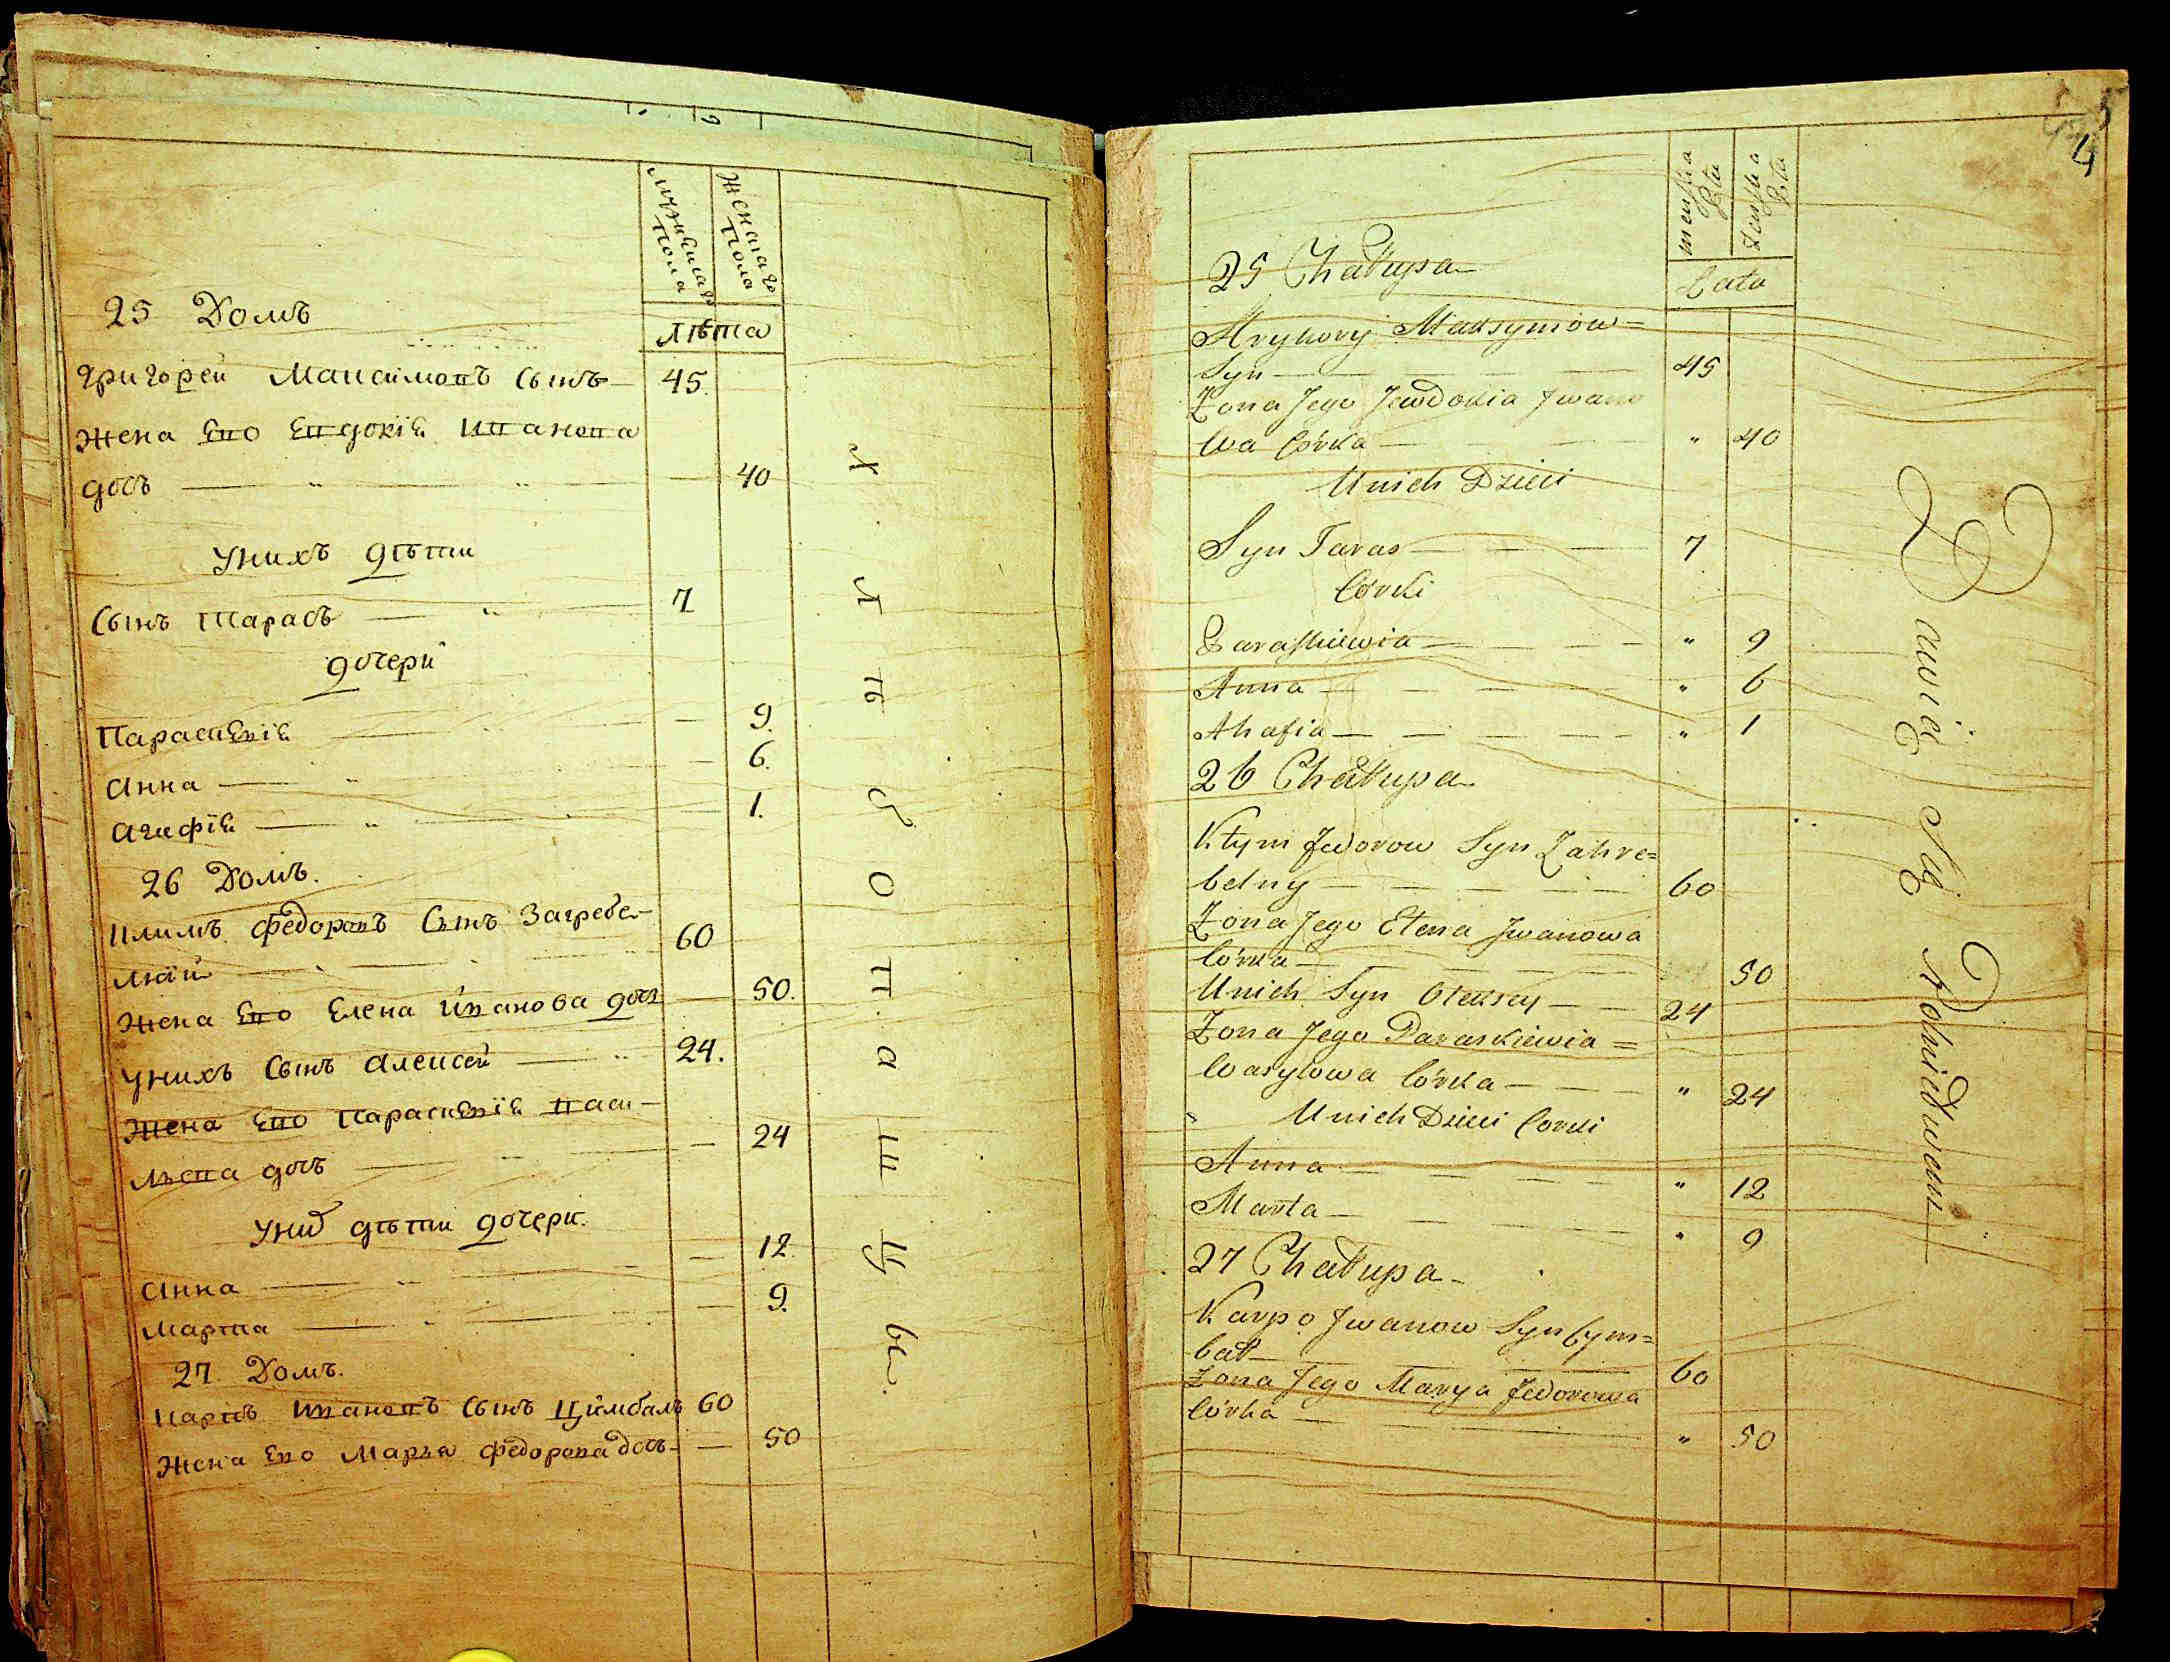 Мужескаго Пола
Женскаго Пола
Лѣта
25 Домъ
Григорей Максимовъ сынъ 45.
Жена Его Евдокія Иванова
дочь 40
У нихъ дѣти
Сынъ Тарасъ 7
дочери
Параскевія 9.
Анна 6.
Агафія 1.
26 Домъ.
Климъ Федоровъ Сынъ Загребел-
ный 60
Жена Его Елена Иванова дочь 50.
У нихъ Сынъ Алексей 24.
Жена Его Параскевія Васи-
льева дочь 24
У них дѣти дочери.
Анна 12.
Марта 9.
27. Домъ.
Карпъ Ивановъ Сынъ Цимбалъ 60
Жена Его Марья Федорова дочь 50
Хлѣбопашцы.
4
męska Płci
żeńska Płci
Lata
25 Chałupa
Hryhory Maksymow=
Syn 45
Zona Jego Jewdokia Jwano
wa Córka " 40
U nich Dzieci
Syn Taras 7
Córki
Paraskiewia " 9
Anna " 6
Ahafia " 1
26 Chałupa
Kłym Fedorow Syn Zahre=
belny 60
Zona Jego Ełena Jwanowa
Córka 50
U nich Syn Ołeksey 24
Zona Jego Paraskiewia=
Wasylowa Córka " 24
U nich Dzieci Corki
Anna " 12
Marta " 9
27 Chałupa
Karpo Jwanow Syn Cym=
bał 60
Zona Jego Marya Fedorowa
Córka " 50
Bawią się Rolnictwem